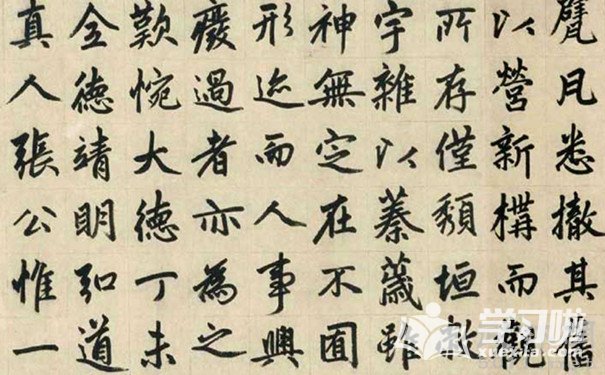 甓凡悉撤其舊
以營新構而
所存僅頹垣敗
宇雜以蓁薉雖
神無定在不囿
形迹而人事興
廢過者亦為之
歎惋大德丁未
全德靖明弘道
真人張公惟一
学习啦
xuexila.com